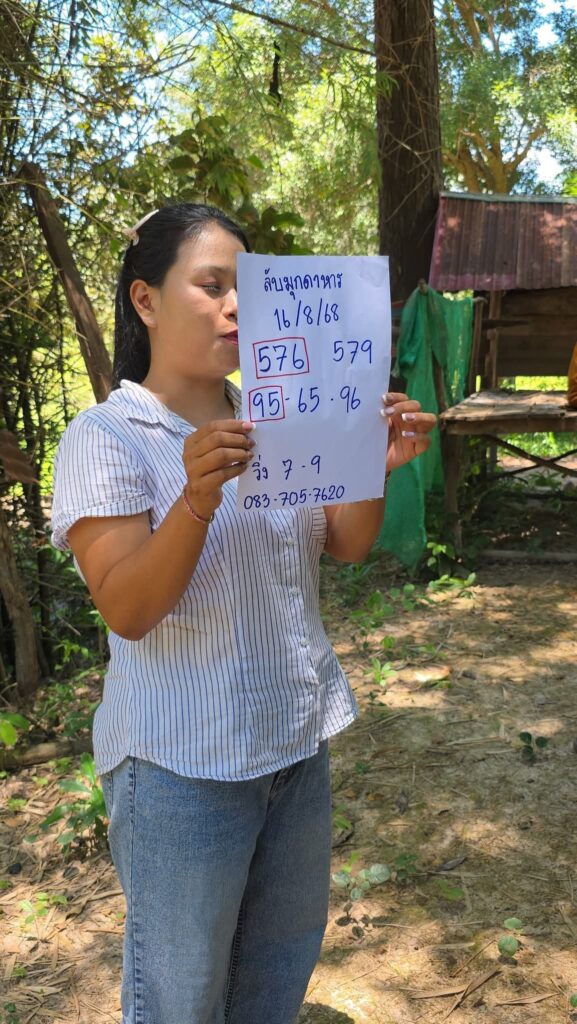 ลับมุกดาหาร
16/8/68
576 579
95-65-96
วิ่ง 7-9
083-705-7620